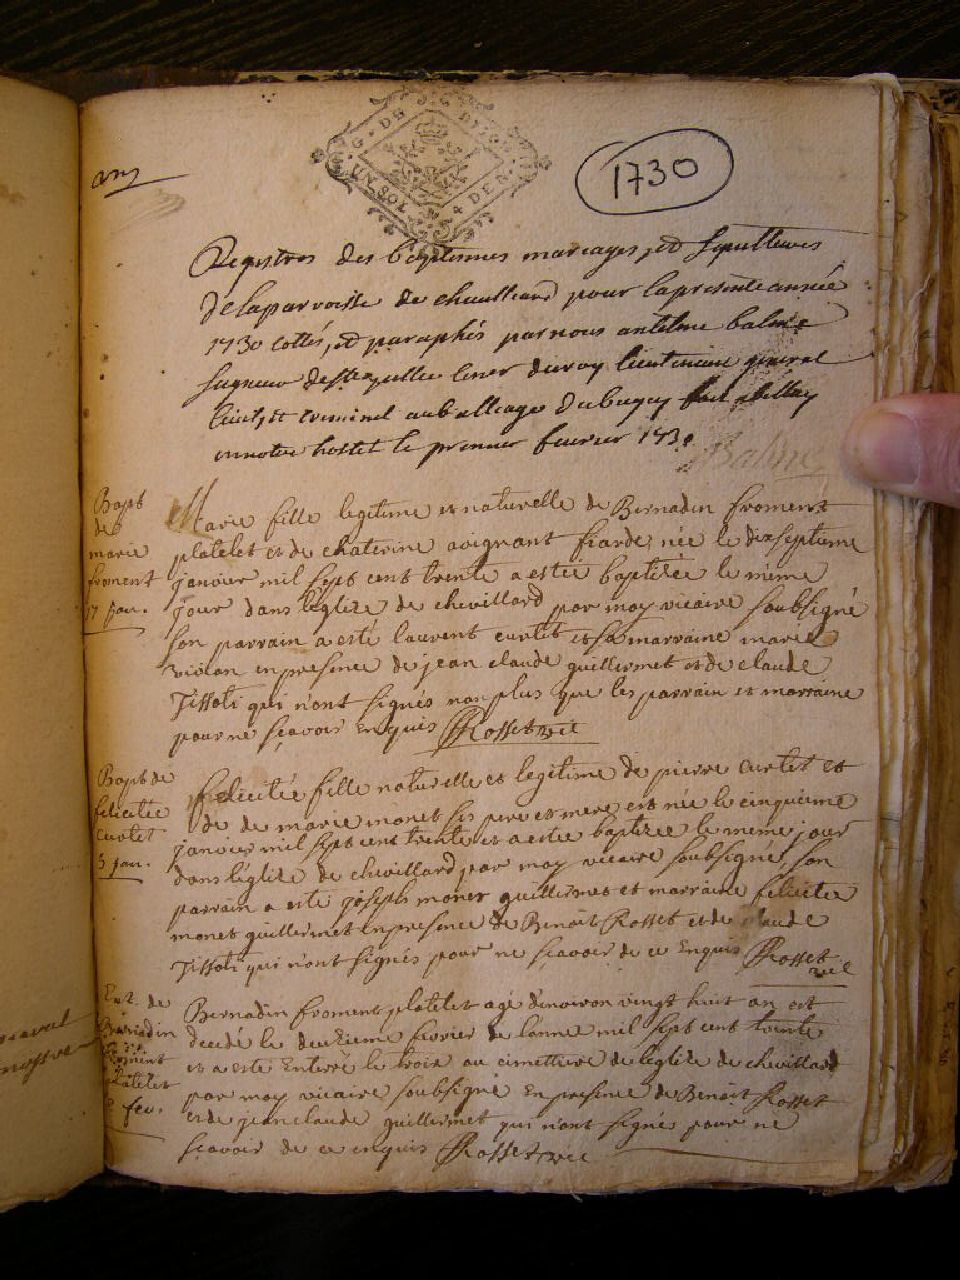 G. DE DIJON
UN SOL 4 DEN.
1730
Registres des baptesmes mariages, et sepultures
de la parroisse de cheuilliard pour la presente année
1730 cottés, et paraphés par nous antelme balme
lieutenant general
ciuil, et criminel au balliage du bugey
en notre hostel le premier feurier 1730
Balme
Bapt
de
marie
froment
17 jan.
Marie fille legitime et naturelle de Bernadin froment
platelet et de chaterine auignant fiarde, née le dixseptieme
janvier mil sept cent trente a estée baptizée le même
jour dans leglize de chevillard par moy vicaire soubsigné
son parrain a esté laurent curtet et sa marraine marie
violan en presence de jean claude guillermet et de claude
Tissoti qui n'ont signés non plus que les parrain et marraine
pour ne sçavoir enquis Rosset vic
Bapt de
felicitée
curtet
5 jan.
felicitée fille naturelle et legitime de pierre curtet et
de de marie monet ses pere et mere est née le cinquieme
janvier mil sept cent trente et a estée baptizée le meme jour
dans leglize de chevillard par moy vicaire soubsigné, son
parrain a esté joseph monet guillermet et marraine felicitée
monet guillermet en presence de Benoit Rosset et de claude
Tissoti qui n'ont signés pour ne sçavoir de ce Enquis Rosset
vic
Ent. de
Bernadin
froment
platelet
2 fev.
Bernadin froment platelet agé d'environ vingt huit an est
decedé le deuzieme fevrier de lanne mil sept cent trente
et a esté Enterré le trois au cimettiere de leglize de chevillard
par moy vicaire soubsigné En presence de Benoit Rosset
et de jean claude guillermet qui n'ont signés pour ne
sçavoir de ce enquis Rosset vic